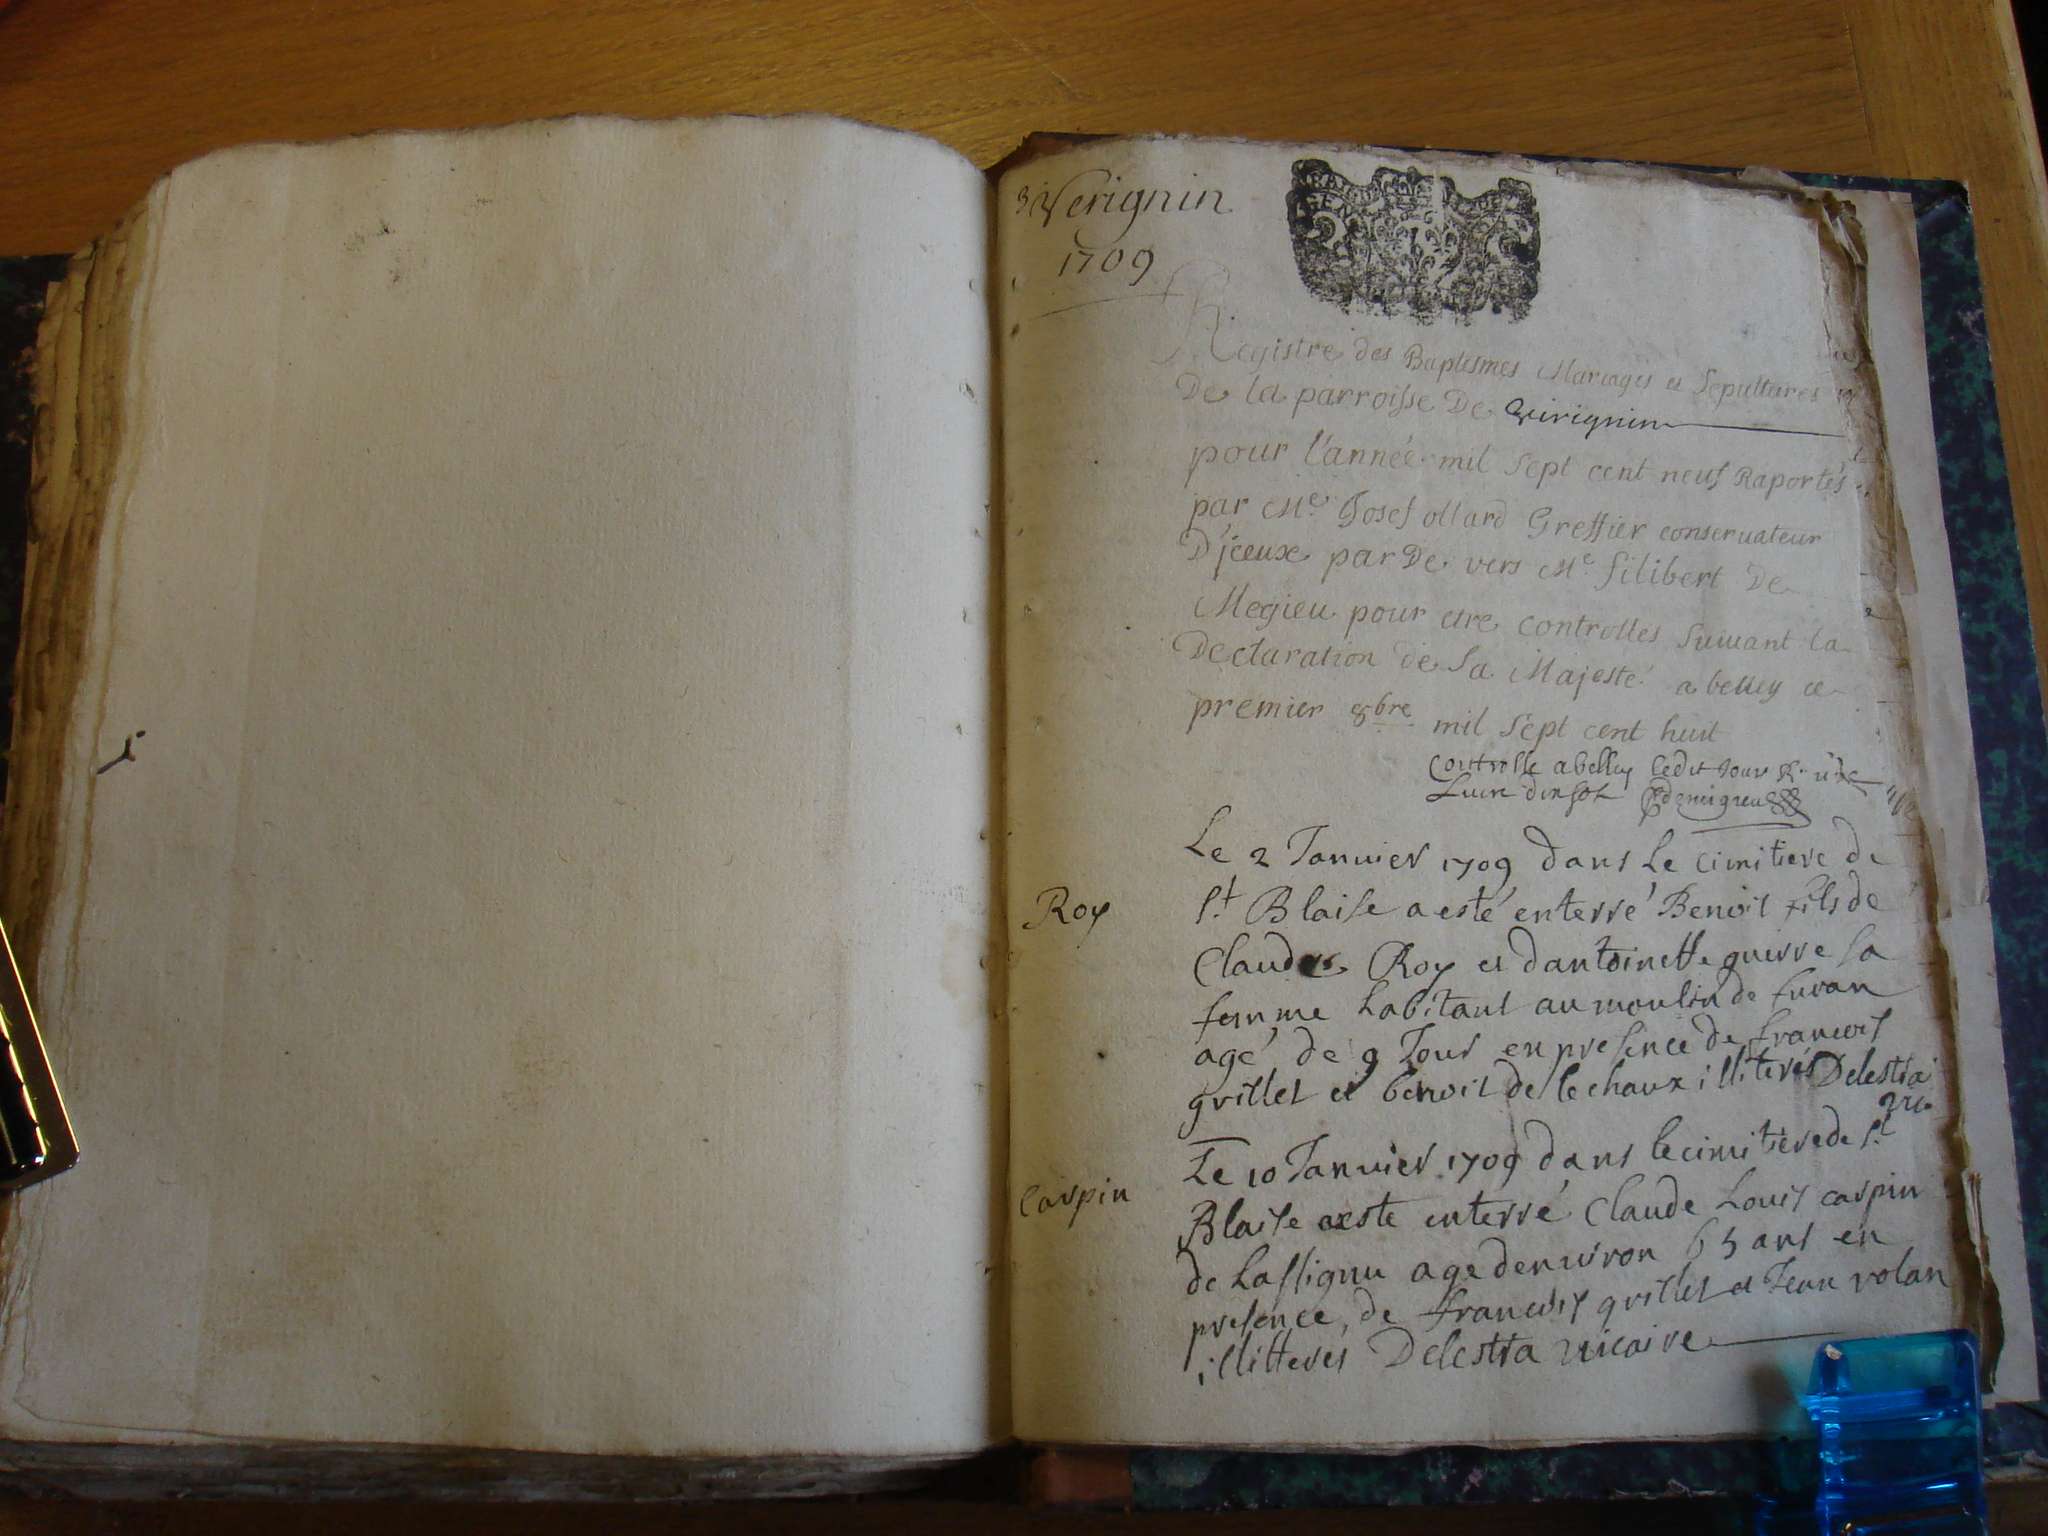 Verignin
1709
Registre des Baptesmes Mariages et Sepultures
De la parroisse De Virignin
pour l'année mil sept cent neuf Raportés
par Me Josef ollard Greffier conservateur
D'jceux par De vers Me filibert De
Megieu pour etre controllés suivant la
Declaration de Sa Majesté a belley ce
premier 8bre mil sept cent huit
Controllé a belley ledit Jour
Le 2 Janvier 1709 dans Le cimitiere de
Roy
St Blaise a esté enterré Benoit fils de
Claude Roy et dantoinette guerre sa
femme habitant au moulin de furan
agé de 9 Jour en presence de francois
grillet et benoit de lechaux illiterés Delestra
vic
Le 10 Janvier 1709 dans le cimitiere de St
Carpin
Blaise a este enterré Claude Louis carpin
de Lassignu age denviron 65 ans en
presence de francois grillet et Jean volan
illitterés Delestra vicaire